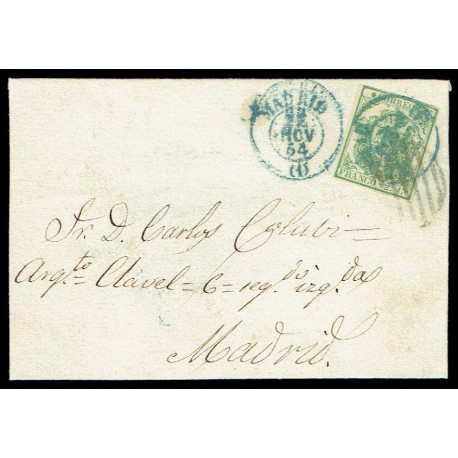 MADRID
12
NOV
54
(1)
CORREOS
FRANCO
Sr. D. Carlos Colubi =
Arq.to Clavel = 6 = seg.do izq.da
Madrid.